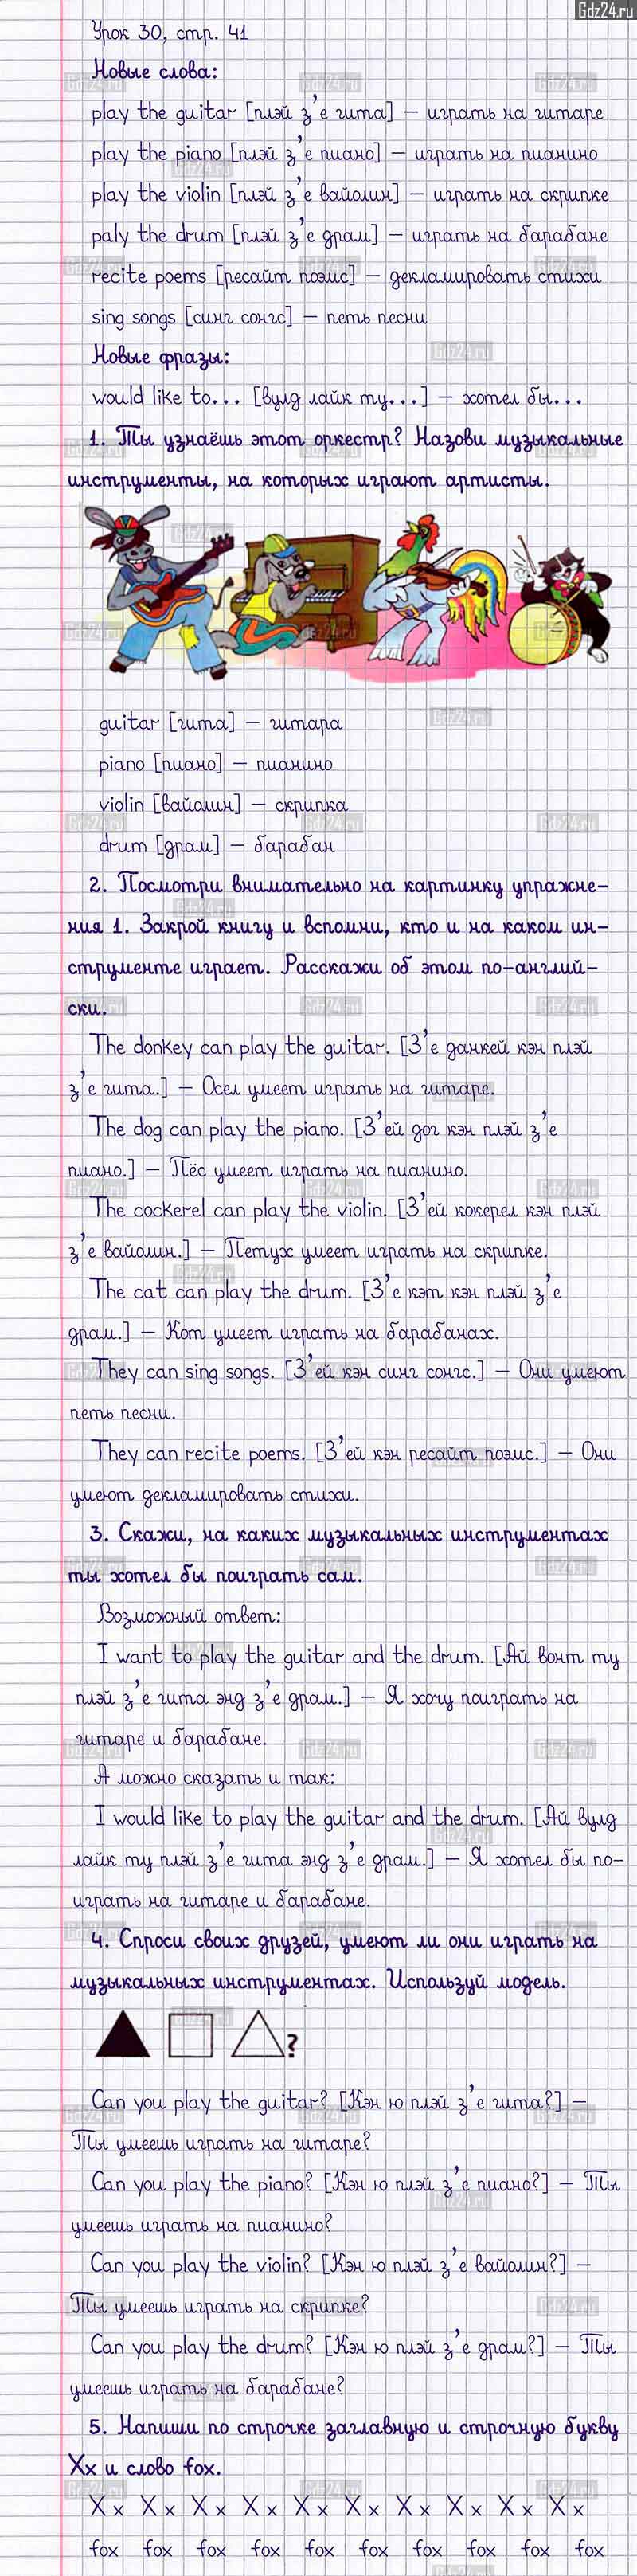 Gdz24.ru
Урок 30, стр. 41
Новые слова:
play the guitar [плэй з’е гита] – играть на гитаре
play the piano [плэй з’е пиано] – играть на пианино
play the violin [плэй з’е вайолин] – играть на скрипке
paly the drum [плэй з’е драм] – играть на барабане
recite poems [ресайт поэмс] – декламировать стихи
sing songs [синг сонгс] – петь песни
Новые фразы:
would like to... [вулд лайк ту...] – хотел бы...
1. Ты узнаёшь этот оркестр? Назови музыкальные
инструменты, на которых играют артисты.
guitar [гита] – гитара
piano [пиано] – пианино
violin [вайолин] – скрипка
drum [драм] – барабан
2. Посмотри внимательно на картинку упражне-
ния 1. Закрой книгу и вспомни, кто и на каком ин-
струменте играет. Расскажи об этом по-англий-
ски.
The donkey can play the guitar. [З’е данкей кэн плэй
з’е гита.] – Осел умеет играть на гитаре.
The dog can play the piano. [З’ей дог кэн плэй з’е
пиано.] – Пёс умеет играть на пианино.
The cockerel can play the violin. [З’ей кокерел кэн плэй
з’е вайолин.] – Петух умеет играть на скрипке.
The cat can play the drum. [З’е кэт кэн плэй з’е
драм.] – Кот умеет играть на барабанах.
They can sing songs. [З’ей кэн синг сонгс.] – Они умеют
петь песни.
They can recite poems. [З’ей кэн ресайт поэмс.] – Они
умеют декламировать стихи.
3. Скажи, на каких музыкальных инструментах
ты хотел бы поиграть сам.
Возможный ответ:
I want to play the guitar and the drum. [Ай вонт ту
плэй з’е гита энд з’е драм.] – Я хочу поиграть на
гитаре и барабане.
А можно сказать и так:
I would like to play the guitar and the drum. [Ай вулд
лайк ту плэй з’е гита энд з’е драм.] – Я хотел бы по-
играть на гитаре и барабане.
4. Спроси своих друзей, умеют ли они играть на
музыкальных инструментах. Используй модель.
?
Can you play the guitar? [Кэн ю плэй з’е гита?] –
Ты умеешь играть на гитаре?
Can you play the piano? [Кэн ю плэй з’е пиано?] – Ты
умеешь играть на пианино?
Can you play the violin? [Кэн ю плэй з’е вайолин?] –
Ты умеешь играть на скрипке?
Can you play the drum? [Кэн ю плэй з’е драм?] – Ты
умеешь играть на барабане?
5. Напиши по строчке заглавную и строчную букву
Xx и слово fox.
X x X x X x X x X x X x X x X x X x X x
fox fox fox fox fox fox fox fox fox fox